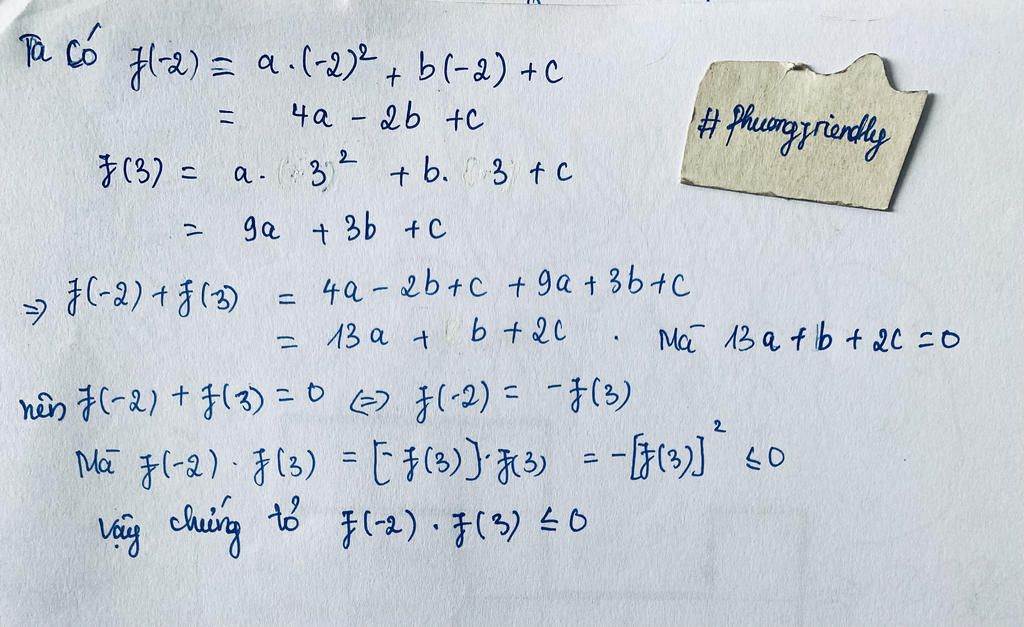 Ta có f(-2) = a.(-2)² + b(-2) + c
= 4a - 2b + c
#phuongfriendly
f(3) = a. 3² + b. 3 + c
= 9a + 3b + c
=> f(-2) + f(3) = 4a - 2b + c + 9a + 3b + c
= 13a + b + 2c . Mà 13a + b + 2c = 0
nên f(-2) + f(3) = 0 <=> f(-2) = -f(3)
Mà f(-2) . f(3) = [-f(3)].f(3) = -[f(3)]² ≤ 0
Vậy chứng tỏ f(-2) . f(3) ≤ 0